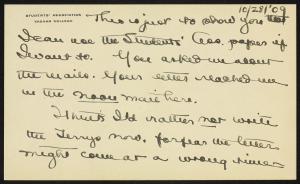 STUDENTS' ASSOCIATION
VASSAR COLLEGE
10/28/'09
This is just to show you that
I can use the Students' Asso. paper if
I want to. You asked me about
the mails. Your letter reached me
in the noon mail here.
I think I'd rather not write
the Terrys now, for fear the letter
might come at a wrong time